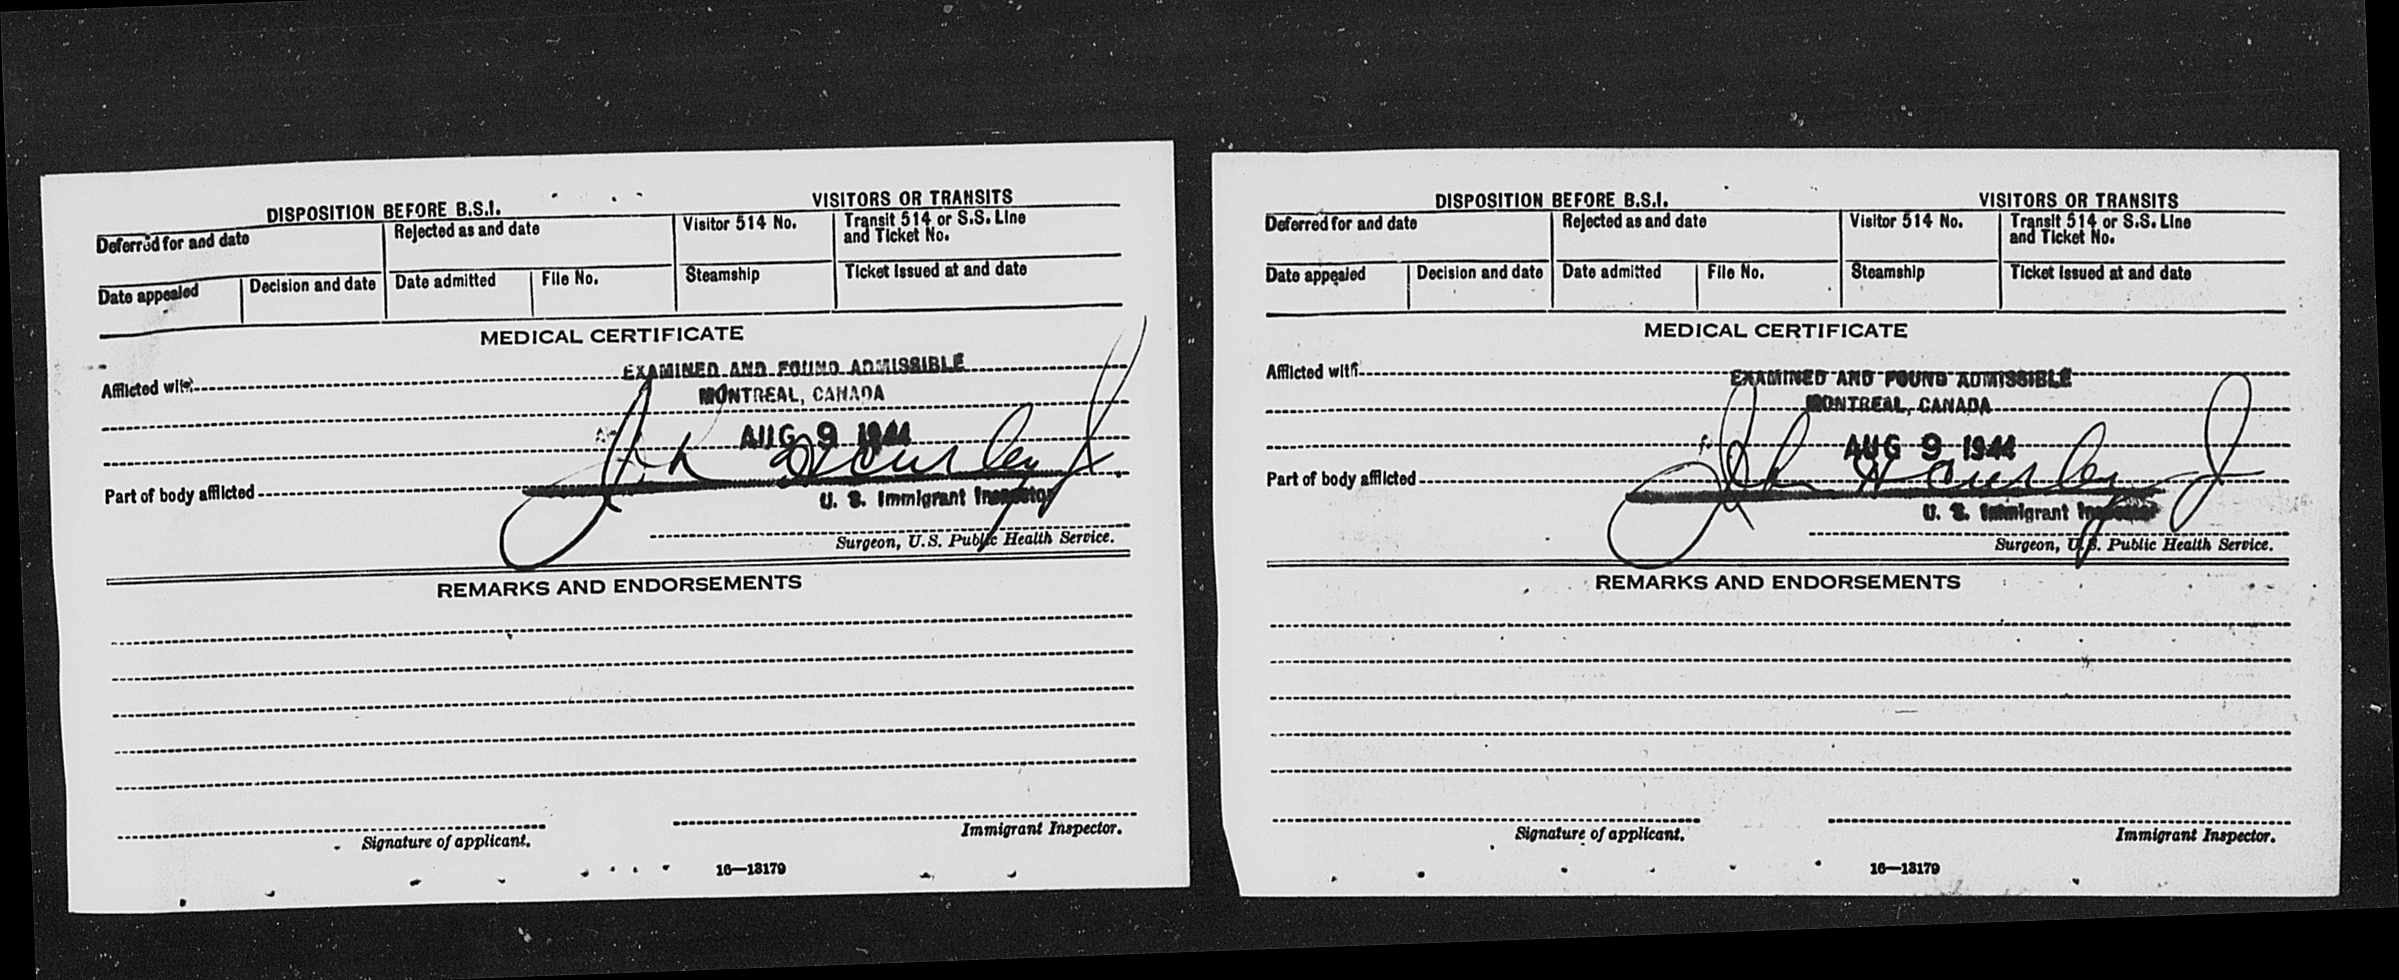 DISPOSITION BEFORE B.S.I. VISITORS OR TRANSITS
Deferred for and date Rejected as and date Visitor 514 No. Transit 514 or S.S. Line
and Ticket No.
Date appealed Decision and date Date admitted File No. Steamship Ticket issued at and date
MEDICAL CERTIFICATE
Afflicted with EXAMINED AND FOUND ADMISSIBLE
MONTREAL, CANADA
AUG 9 1944
Part of body afflicted
U. S. Immigrant Inspector
Surgeon, U.S. Public Health Service.
REMARKS AND ENDORSEMENTS
Signature of applicant. Immigrant Inspector.
16—13179
DISPOSITION BEFORE B.S.I. VISITORS OR TRANSITS
Deferred for and date Rejected as and date Visitor 514 No. Transit 514 or S.S. Line
and Ticket No.
Date appealed Decision and date Date admitted File No. Steamship Ticket issued at and date
MEDICAL CERTIFICATE
Afflicted with EXAMINED AND FOUND ADMISSIBLE
MONTREAL, CANADA
AUG 9 1944
Part of body afflicted
U. S. Immigrant Inspector
Surgeon, U.S. Public Health Service.
REMARKS AND ENDORSEMENTS
Signature of applicant. Immigrant Inspector.
16—13179